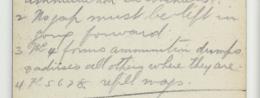 2. No gap must be left in
going forward.
3. No 4 forms ammunition dumps
& advises all others where they are.
4. Nos 5 6 7 & 8 refill mags.